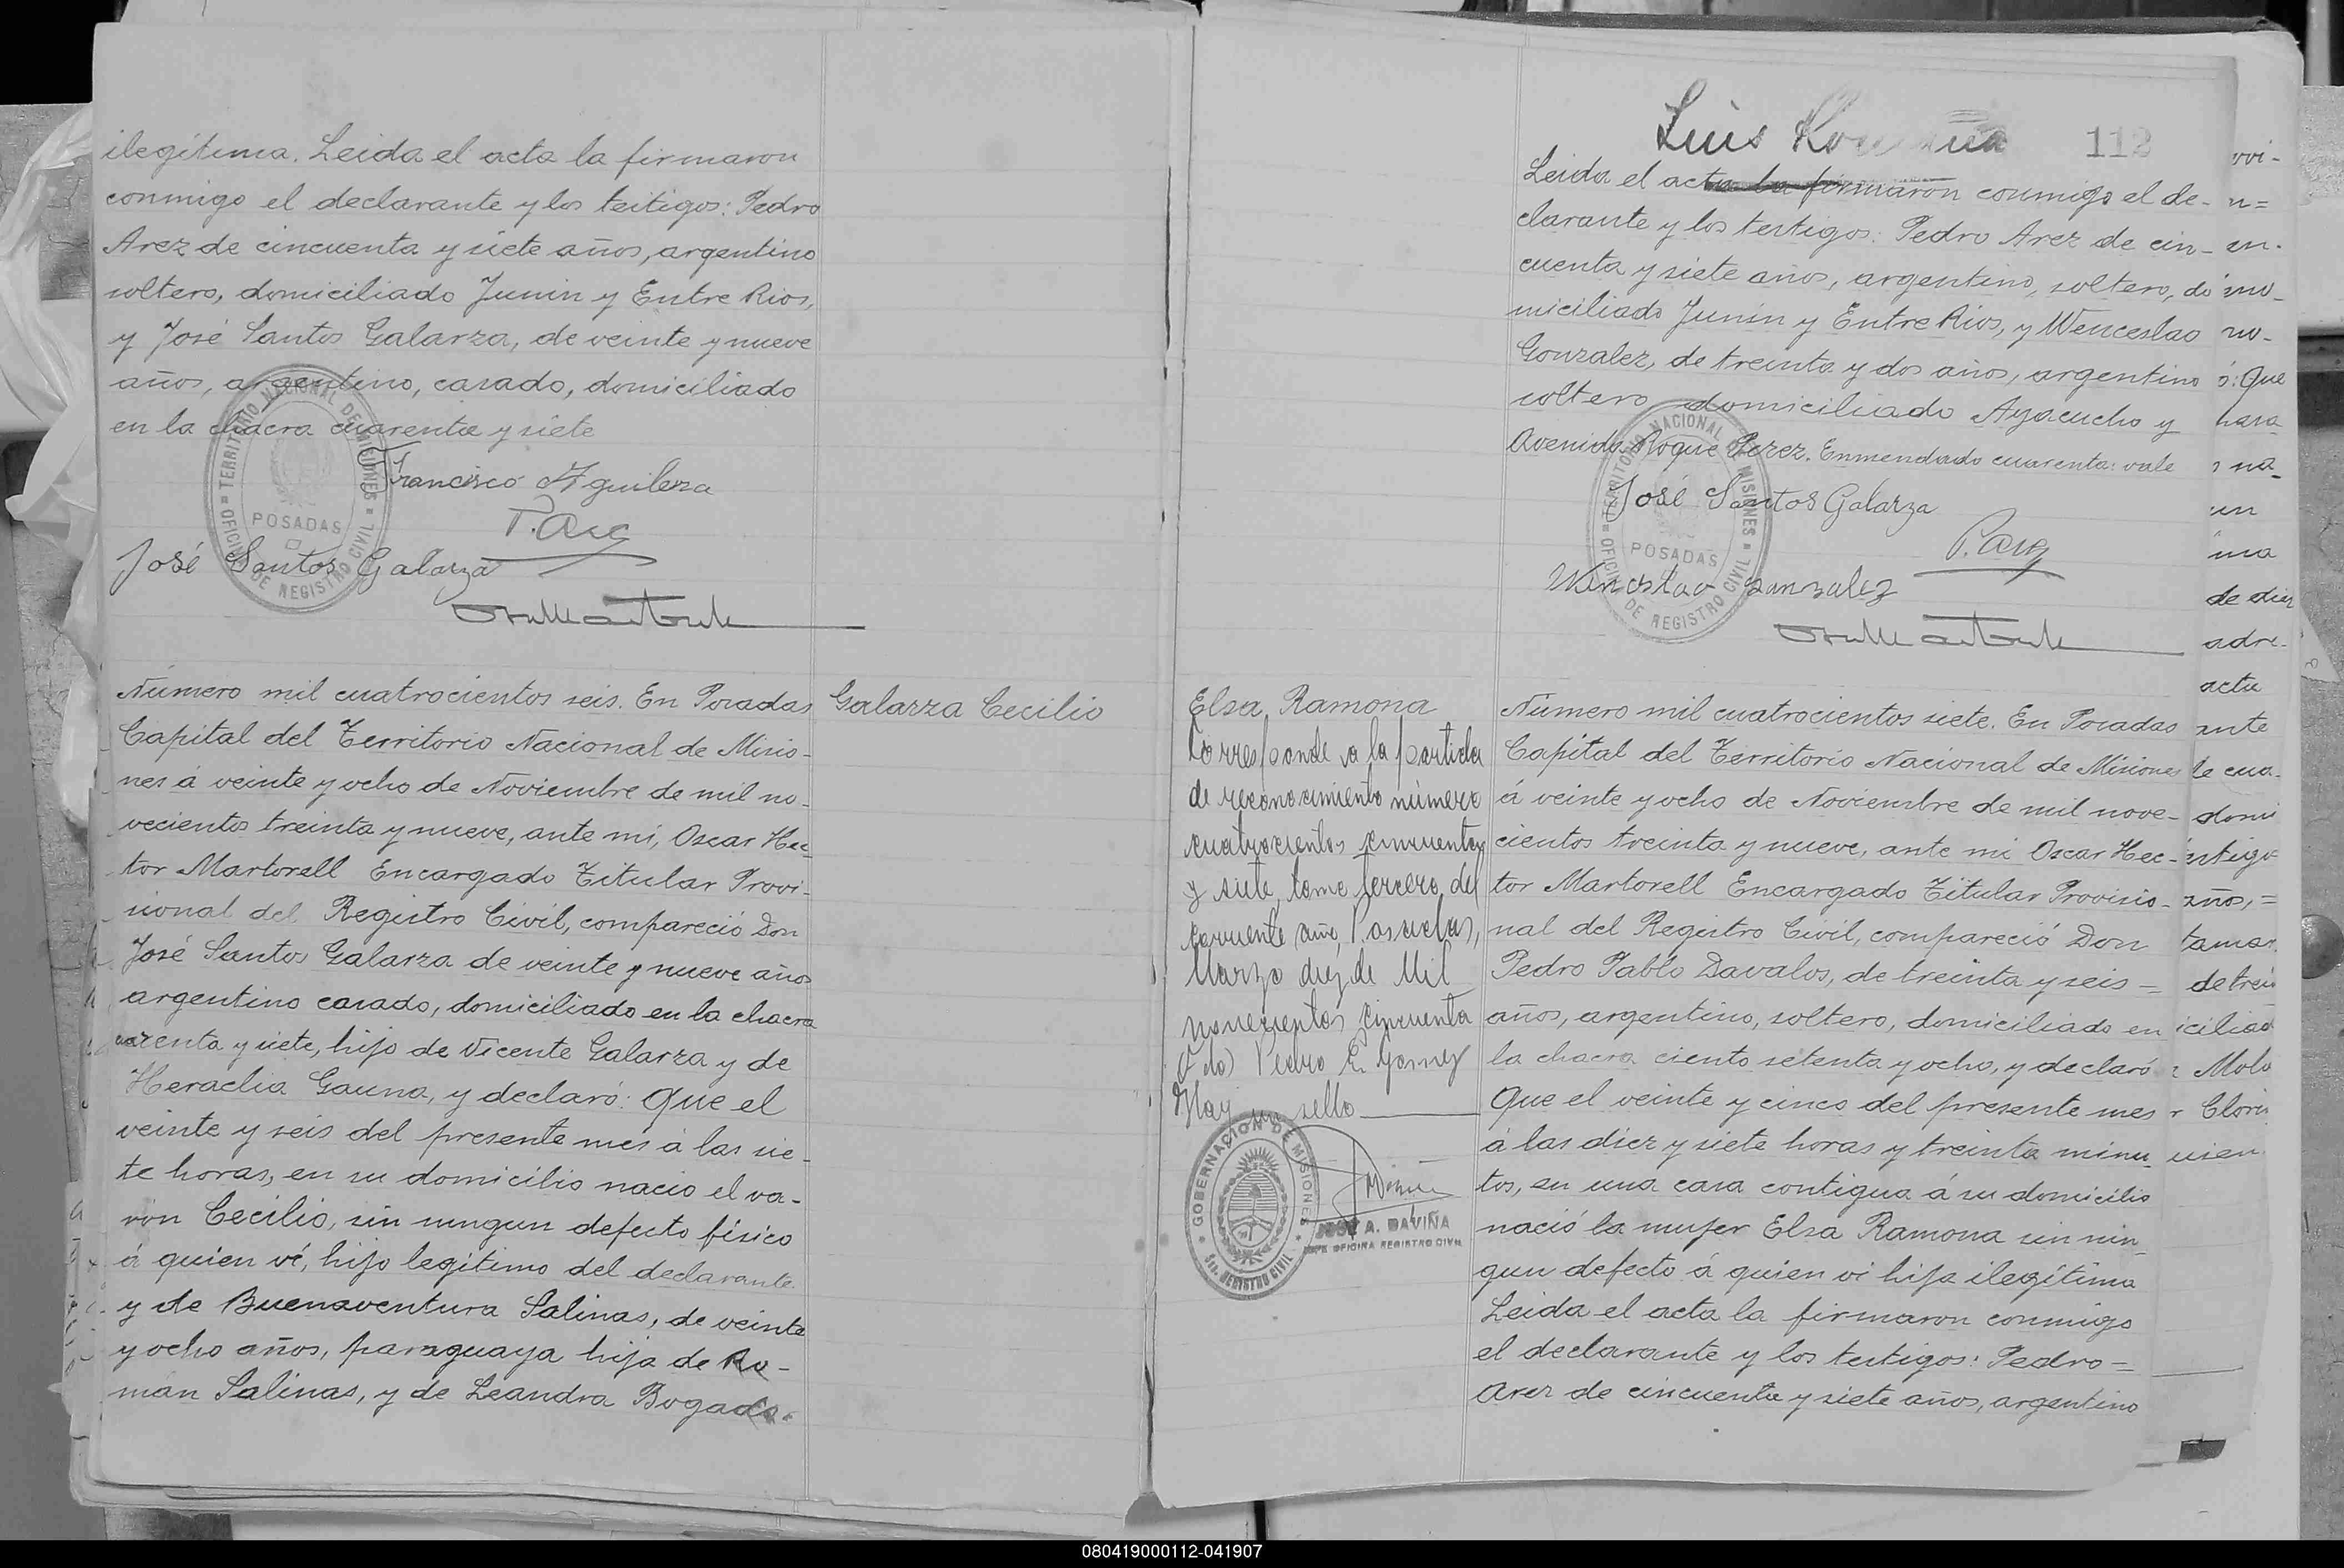 ilegítima. Leida el acta la firmaron
conmigo el declarante y los testigos: Pedro
Arez de cincuenta y siete años, argentino
soltero, domiciliado Junin y Entre Rios,
y José Santos Galarza, de veinte y nueve
años, argentino, casado, domiciliado
en la chacra cuarenta y siete
TERRITORIO NACIONAL DE MISIONES
OFICINA DE REGISTRO CIVIL
POSADAS
Francisco Aguilera
P. Arez
José Santos Galarza
Número mil cuatrocientos seis. En Posadas
Capital del Territorio Nacional de Misio-
nes á veinte y ocho de Noviembre de mil no-
vecientos treinta y nueve, ante mi, Oscar Hec-
tor Martorell Encargado Titular Provi-
sional del Registro Civil, compareció Don
José Santos Galarza de veinte y nueve años
argentino casado, domiciliado en la chacra
cuarenta y siete, hijo de Vicente Galarza y de
Heraclia Gauna, y declaró: Que el
veinte y seis del presente mes á las sie-
te horas, en su domicilio nacio el va-
rón Cecilio, sin ningun defecto fisico
á quien vi, hijo legítimo del declarante
y de Buenaventura Salinas, de veinte
y ocho años, paraguaya hija de Ro-
mán Salinas, y de Leandra Bogado.
Galarza Cecilio
Luis
112
Leida el acta la firmaron conmigo el de-
clarante y los testigos: Pedro Arez de cin-
cuenta y siete años, argentino, soltero, do
miciliado Junin y Entre Rios, y Wenceslao
Gonzalez, de treinta y dos años, argentino
soltero domiciliado Ayacucho y
Avenida Roque Perez. Enmendado cuarenta: vale
TERRITORIO NACIONAL DE MISIONES
OFICINA DE REGISTRO CIVIL
POSADAS
José Santos Galarza
P. Arez
Wenceslao Gonzalez
Elsa Ramona
Corresponde a la partida
de reconocimiento número
cuatrocientos cincuenta
y siete, tomo tercero, del
corriente año, Posadas,
Marzo diez de Mil
novecientos cincuenta
(Fdo) Pedro E. Gomez
Hay un sello
GOBERNACION DE MISIONES
REGISTRO CIVIL
JOSE A. DAVIÑA
JEFE OFICINA REGISTRO CIVIL
Número mil cuatrocientos siete. En Posadas
Capital del Territorio Nacional de Misiones
á veinte y ocho de Noviembre de mil nove-
cientos treinta y nueve, ante mi Oscar Hec-
tor Martorell Encargado Titular Provisio-
nal del Registro Civil, compareció Don
Pedro Pablo Davalos, de treinta y seis =
años, argentino, soltero, domiciliado en
la chacra ciento setenta y ocho, y declaró
Que el veinte y cinco del presente mes
á las diez y siete horas y treinta minu-
tos, en una casa contigua á su domicilio
nació la mujer Elsa Ramona sin nin-
gun defecto á quien vi hija ilegítima
Leida el acta la firmaron conmigo
el declarante y los testigos: Pedro =
Arez de cincuenta y siete años, argentino
080419000112-041907